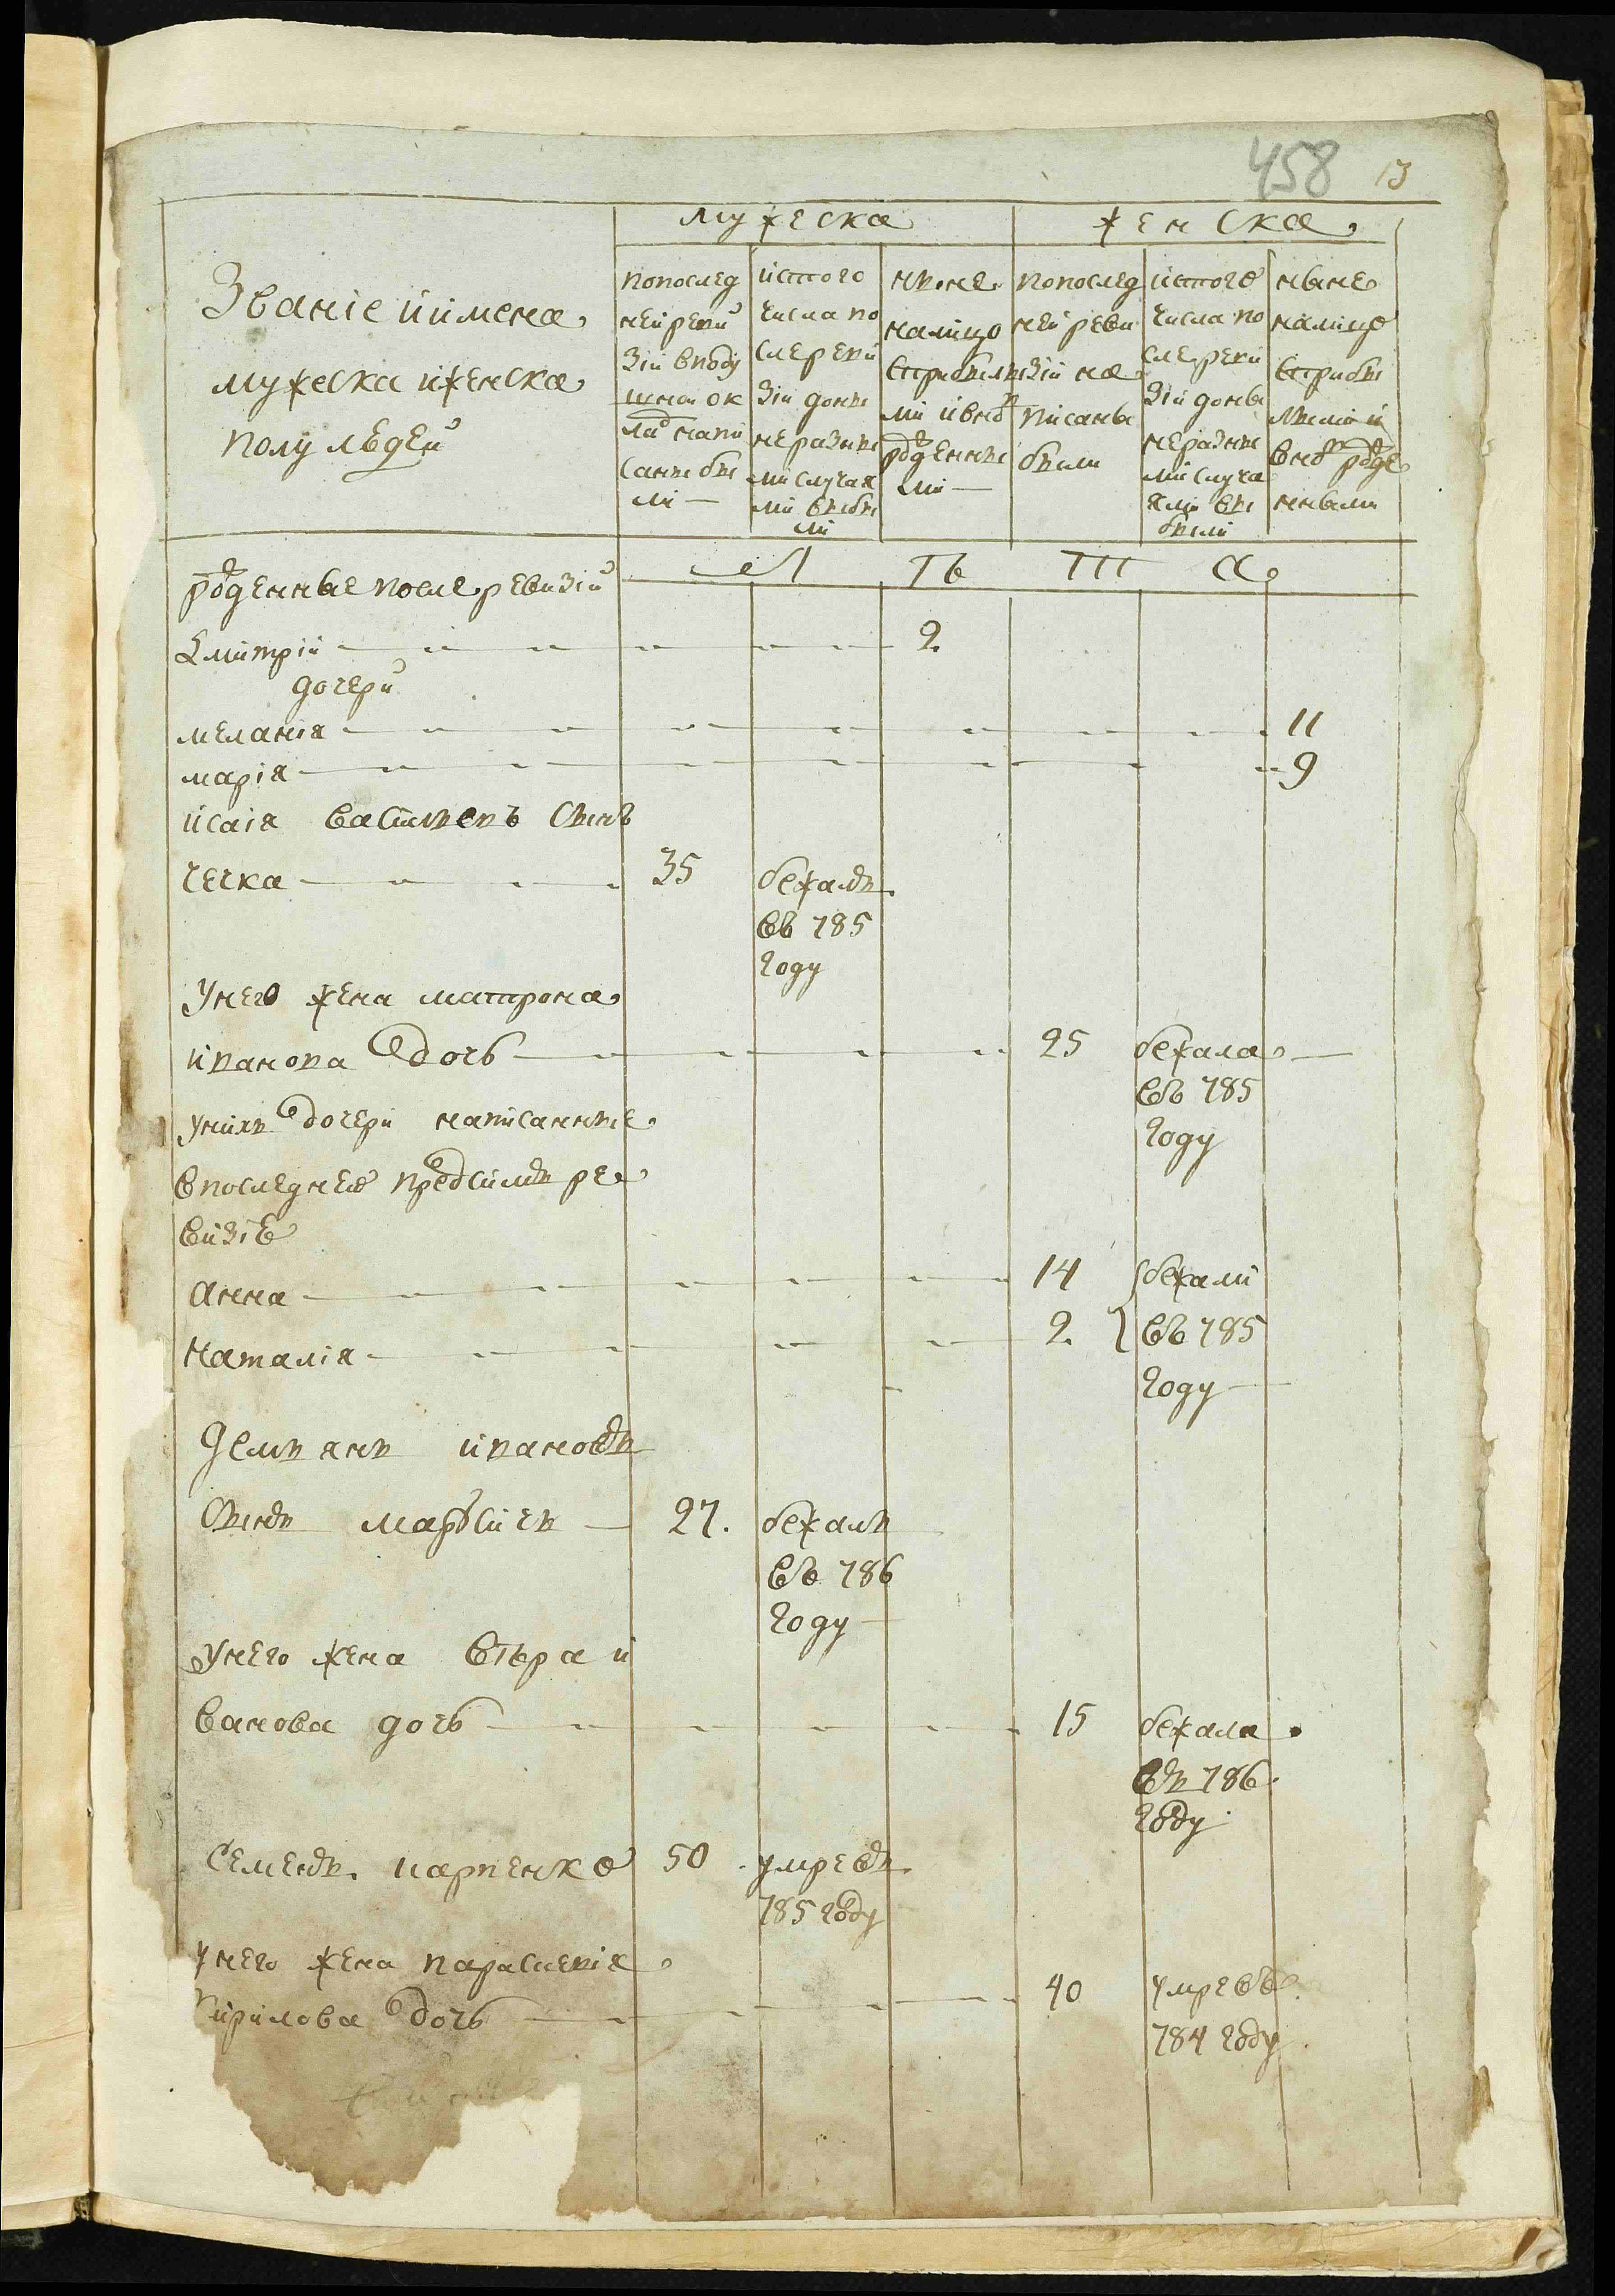 458 13
мужеска
женска
Званіе и имена
мужеска и женска
полу людей
попослед
ней реви
зіи вподу
шной ок
лад напи
саны бы
ли
истого
числа по
сле реви
зіи доны
не разны
ми случая
ми выбы
ли
ныне
налицо
сприбылы
ми и вно
рожденны
ми
попослед
ней реви
зіи на
писаны
были
истого
числа по
сле реви
зіи доны
не разны
ми случа
ями вы
были
ныне
налицо
сприбы
лыми и
вно рожде
нными
Л Ѣ Т А
рожденные после ревизіи
Дмитрій 2
дочери
меланія 11
марія 9
исаія васильевъ сынъ
чечка 35 бежалъ
въ 785
году
Унего жена матрона
иванова дочь 25 бежала
въ 785
году
унихъ дочери написанные
впоследнею предсимъ ре
визіе
анна 14 бежали
наталія 2 въ 785
году
Демьянъ ивановъ
сынъ 27 бежалъ
въ 786
году
унего жена вѣра и
ванова дочь 15 бежала
въ 786
году
Семенъ 50 умре въ
785 году
унего жена параскевія
кирилова дочь 40 умре въ
784 году